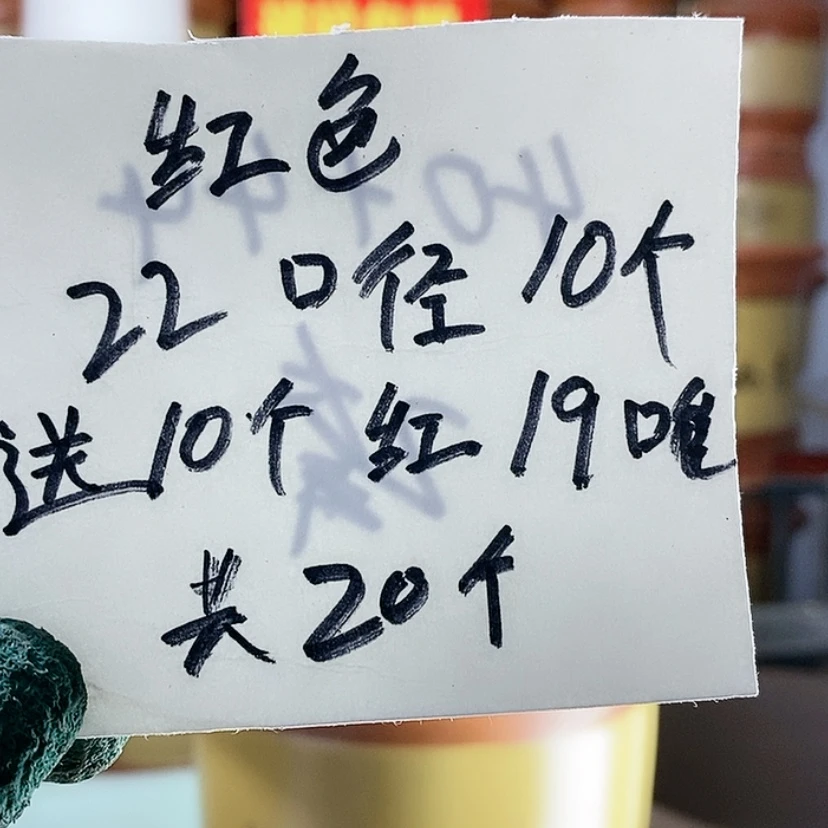 红色
22 口径 10个
送10个 红 19 唯
共20个